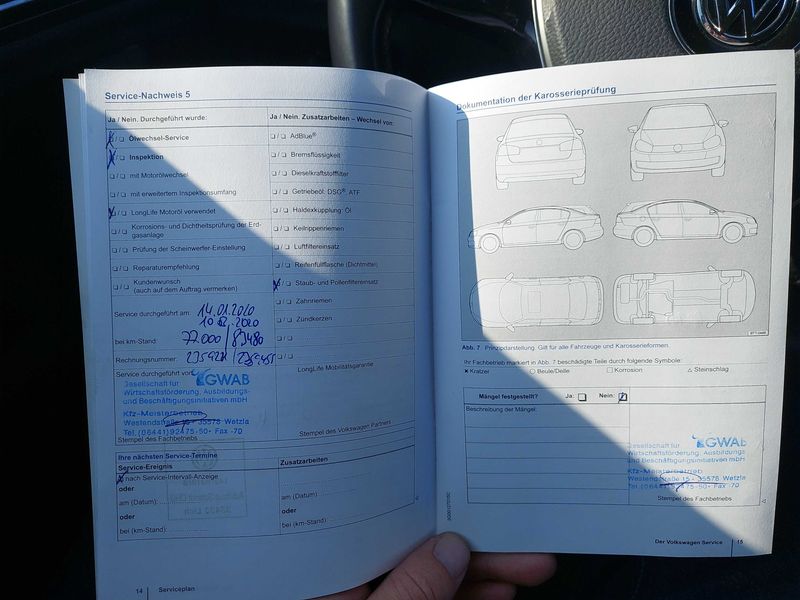 Service-Nachweis 5
Ja / Nein. Durchgeführt wurde:
Ja / Nein. Zusatzarbeiten – Wechsel von:
❑/❑ Ölwechsel-Service
❑/❑ AdBlue®
❑/❑ Inspektion
❑/❑ Bremsflüssigkeit
❑/❑ mit Motorölwechsel
❑/❑ Dieselkraftstofffilter
❑/❑ mit erweitertem Inspektionsumfang
❑/❑ Getriebeöl: DSG®, ATF
❑/❑ LongLife Motoröl verwendet
❑/❑ Haldexkupplung: Öl
❑/❑ Korrosions- und Dichtheitsprüfung der Erd-
gasanlage
❑/❑ Keilrippenriemen
❑/❑ Prüfung der Scheinwerfer-Einstellung
❑/❑ Luftfiltereinsatz
❑/❑ Reparaturempfehlung
❑/❑ Reifenfüllflasche (Dichtmittel)
❑/❑ Kundenwunsch
(auch auf dem Auftrag vermerken)
❑/❑ Staub- und Pollenfiltereinsatz
❑/❑ Zahnriemen
❑/❑ Zündkerzen
❑/❑
❑/❑
Service durchgeführt am: 14.01.2020
2020
bei km-Stand: 77.000 / 83480
Rechnungsnummer:
LongLife Mobilitätsgarantie
Service durchgeführt von:
GWAB
Gesellschaft für
Wirtschaftsförderung, Ausbildungs-
und Beschäftigungsinitiativen mbH
Kfz-Meisterbetrieb
Westendstraße 15 - 35578 Wetzla
Tel. (06441) 92475-50 - Fax -70
Stempel des Fachbetriebs
Stempel des Volkswagen Partners
Ihre nächsten Service-Termine
Service-Ereignis
Zusatzarbeiten
❑ nach Service-Intervall-Anzeige
oder
am (Datum):
am (Datum):
oder
oder
bei (km-Stand):
bei (km-Stand):
14 | Serviceplan
Dokumentation der Karosserieprüfung
Abb. 7 Prinzipdarstellung. Gilt für alle Fahrzeuge und Karosserieformen.
Ihr Fachbetrieb markiert in Abb. 7 beschädigte Teile durch folgende Symbole:
× Kratzer ○ Beule/Delle □ Korrosion △ Steinschlag
Mängel festgestellt? Ja: ❑ Nein: ❑
Beschreibung der Mängel:
GWAB
Gesellschaft für
Wirtschaftsförderung, Ausbildungs-
und Beschäftigungsinitiativen mbH
Kfz-Meisterbetrieb
Westendstraße 15 - 35578 Wetzla
Tel. (06441) 92475-50 - Fax 70
Stempel des Fachbetriebs
Der Volkswagen Service | 15